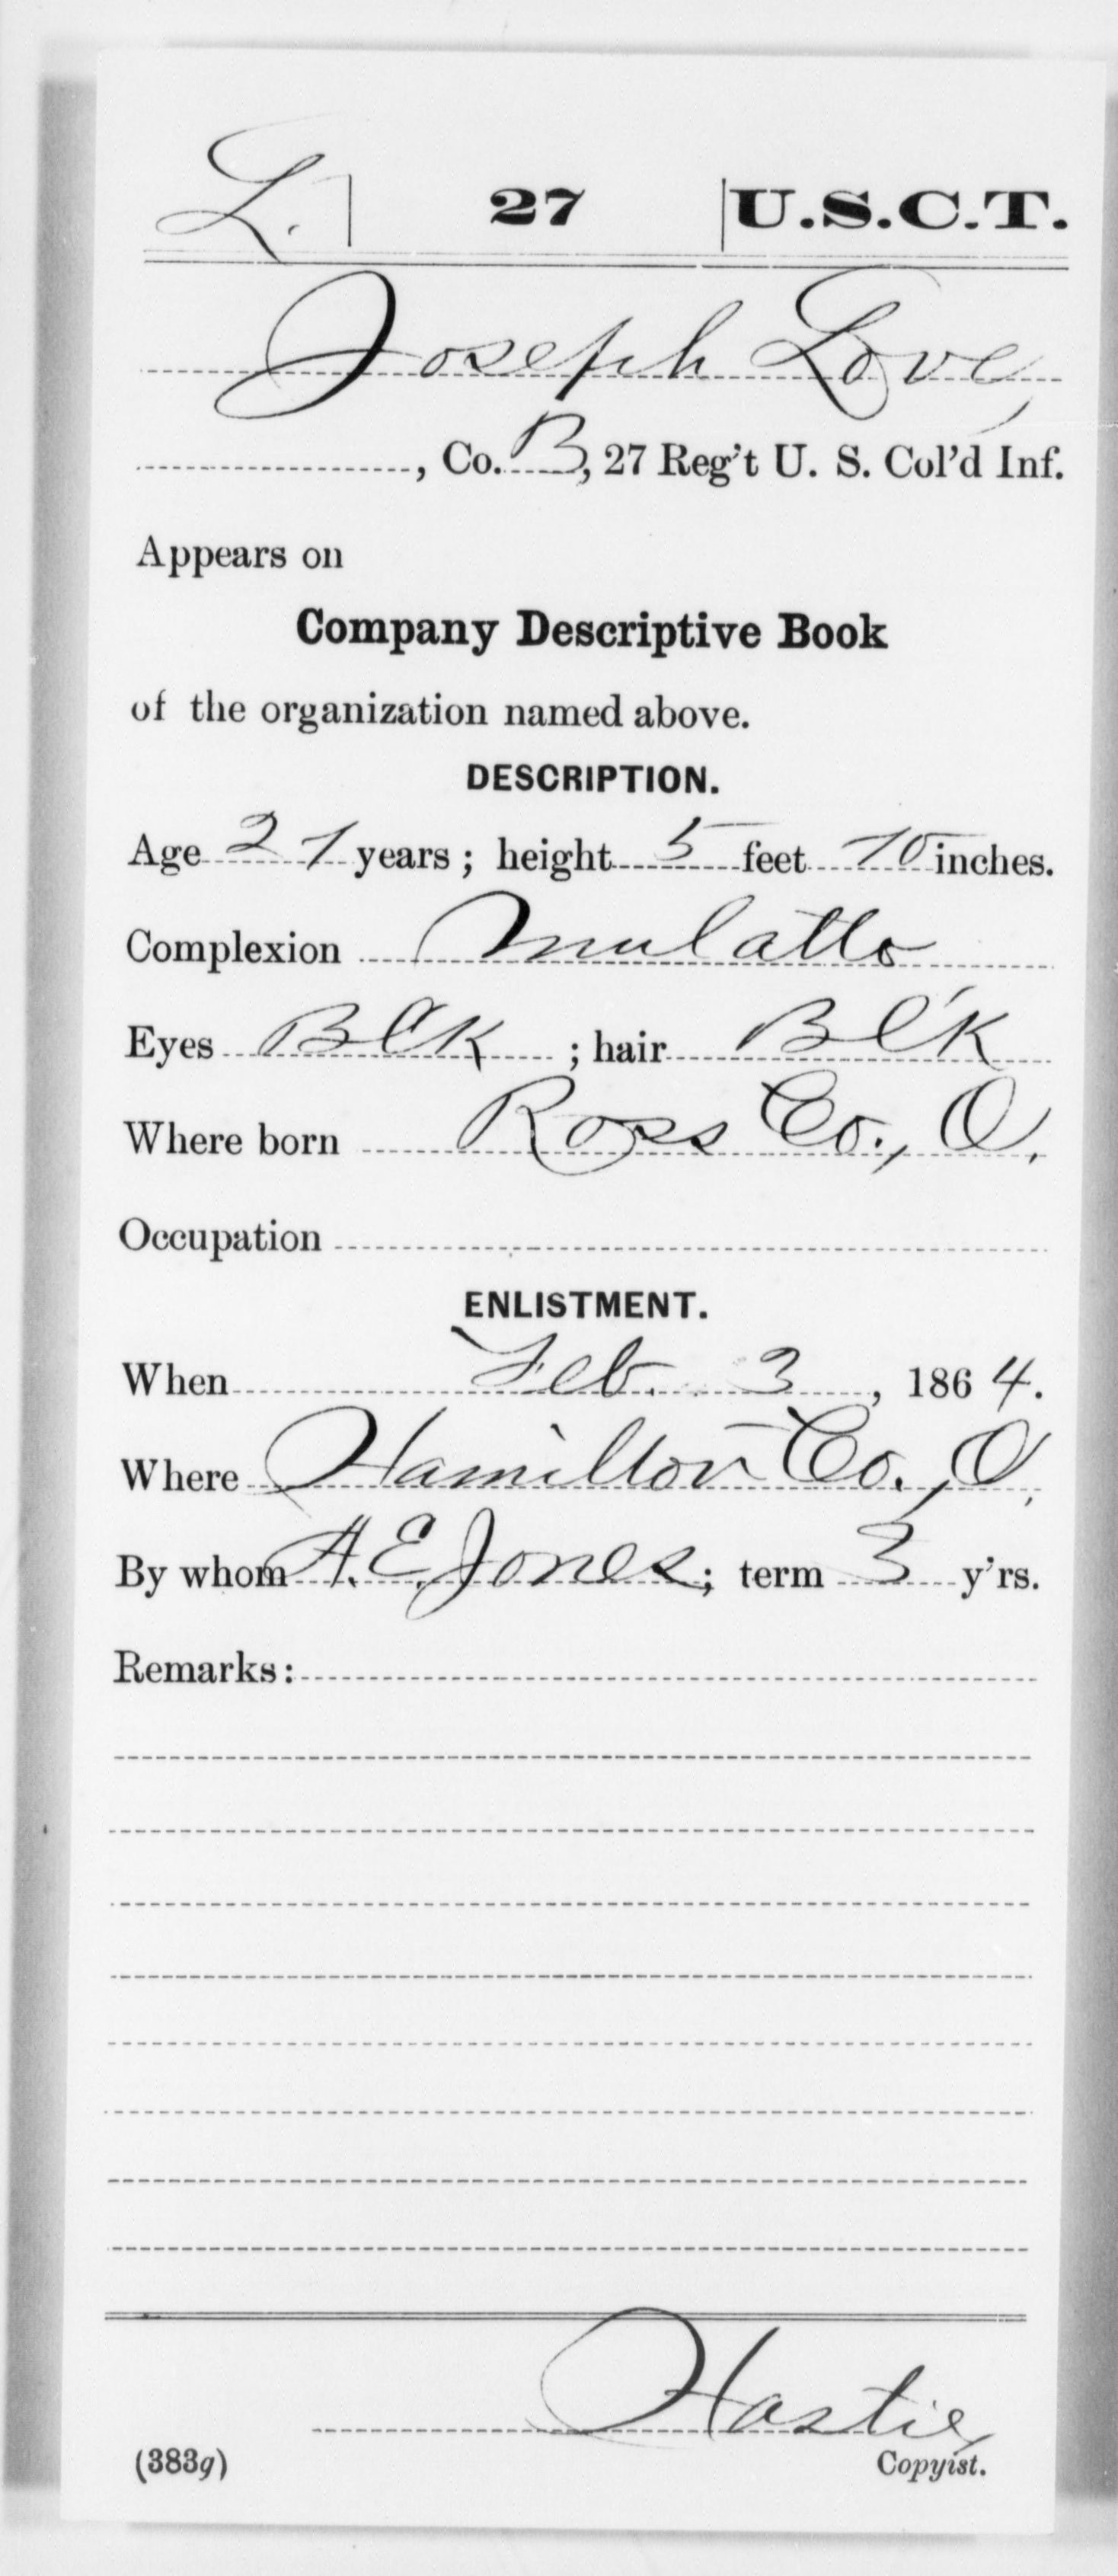 L. | 27 | U.S.C.T.
Joseph Love,
, Co. B, 27 Reg't U. S. Col'd Inf.
Appears on
Company Descriptive Book
of the organization named above.
DESCRIPTION.
Age 21 years; height 5 feet 10 inches.
Complexion Mulatto
Eyes Blk ; hair Bl'k
Where born Ross Co., O.
Occupation
ENLISTMENT.
When Feb. 3, 1864.
Where Hamilton Co., O.
By whom A. E. Jones; term 3 y'rs.
Remarks:
Hastie
(383g) Copyist.